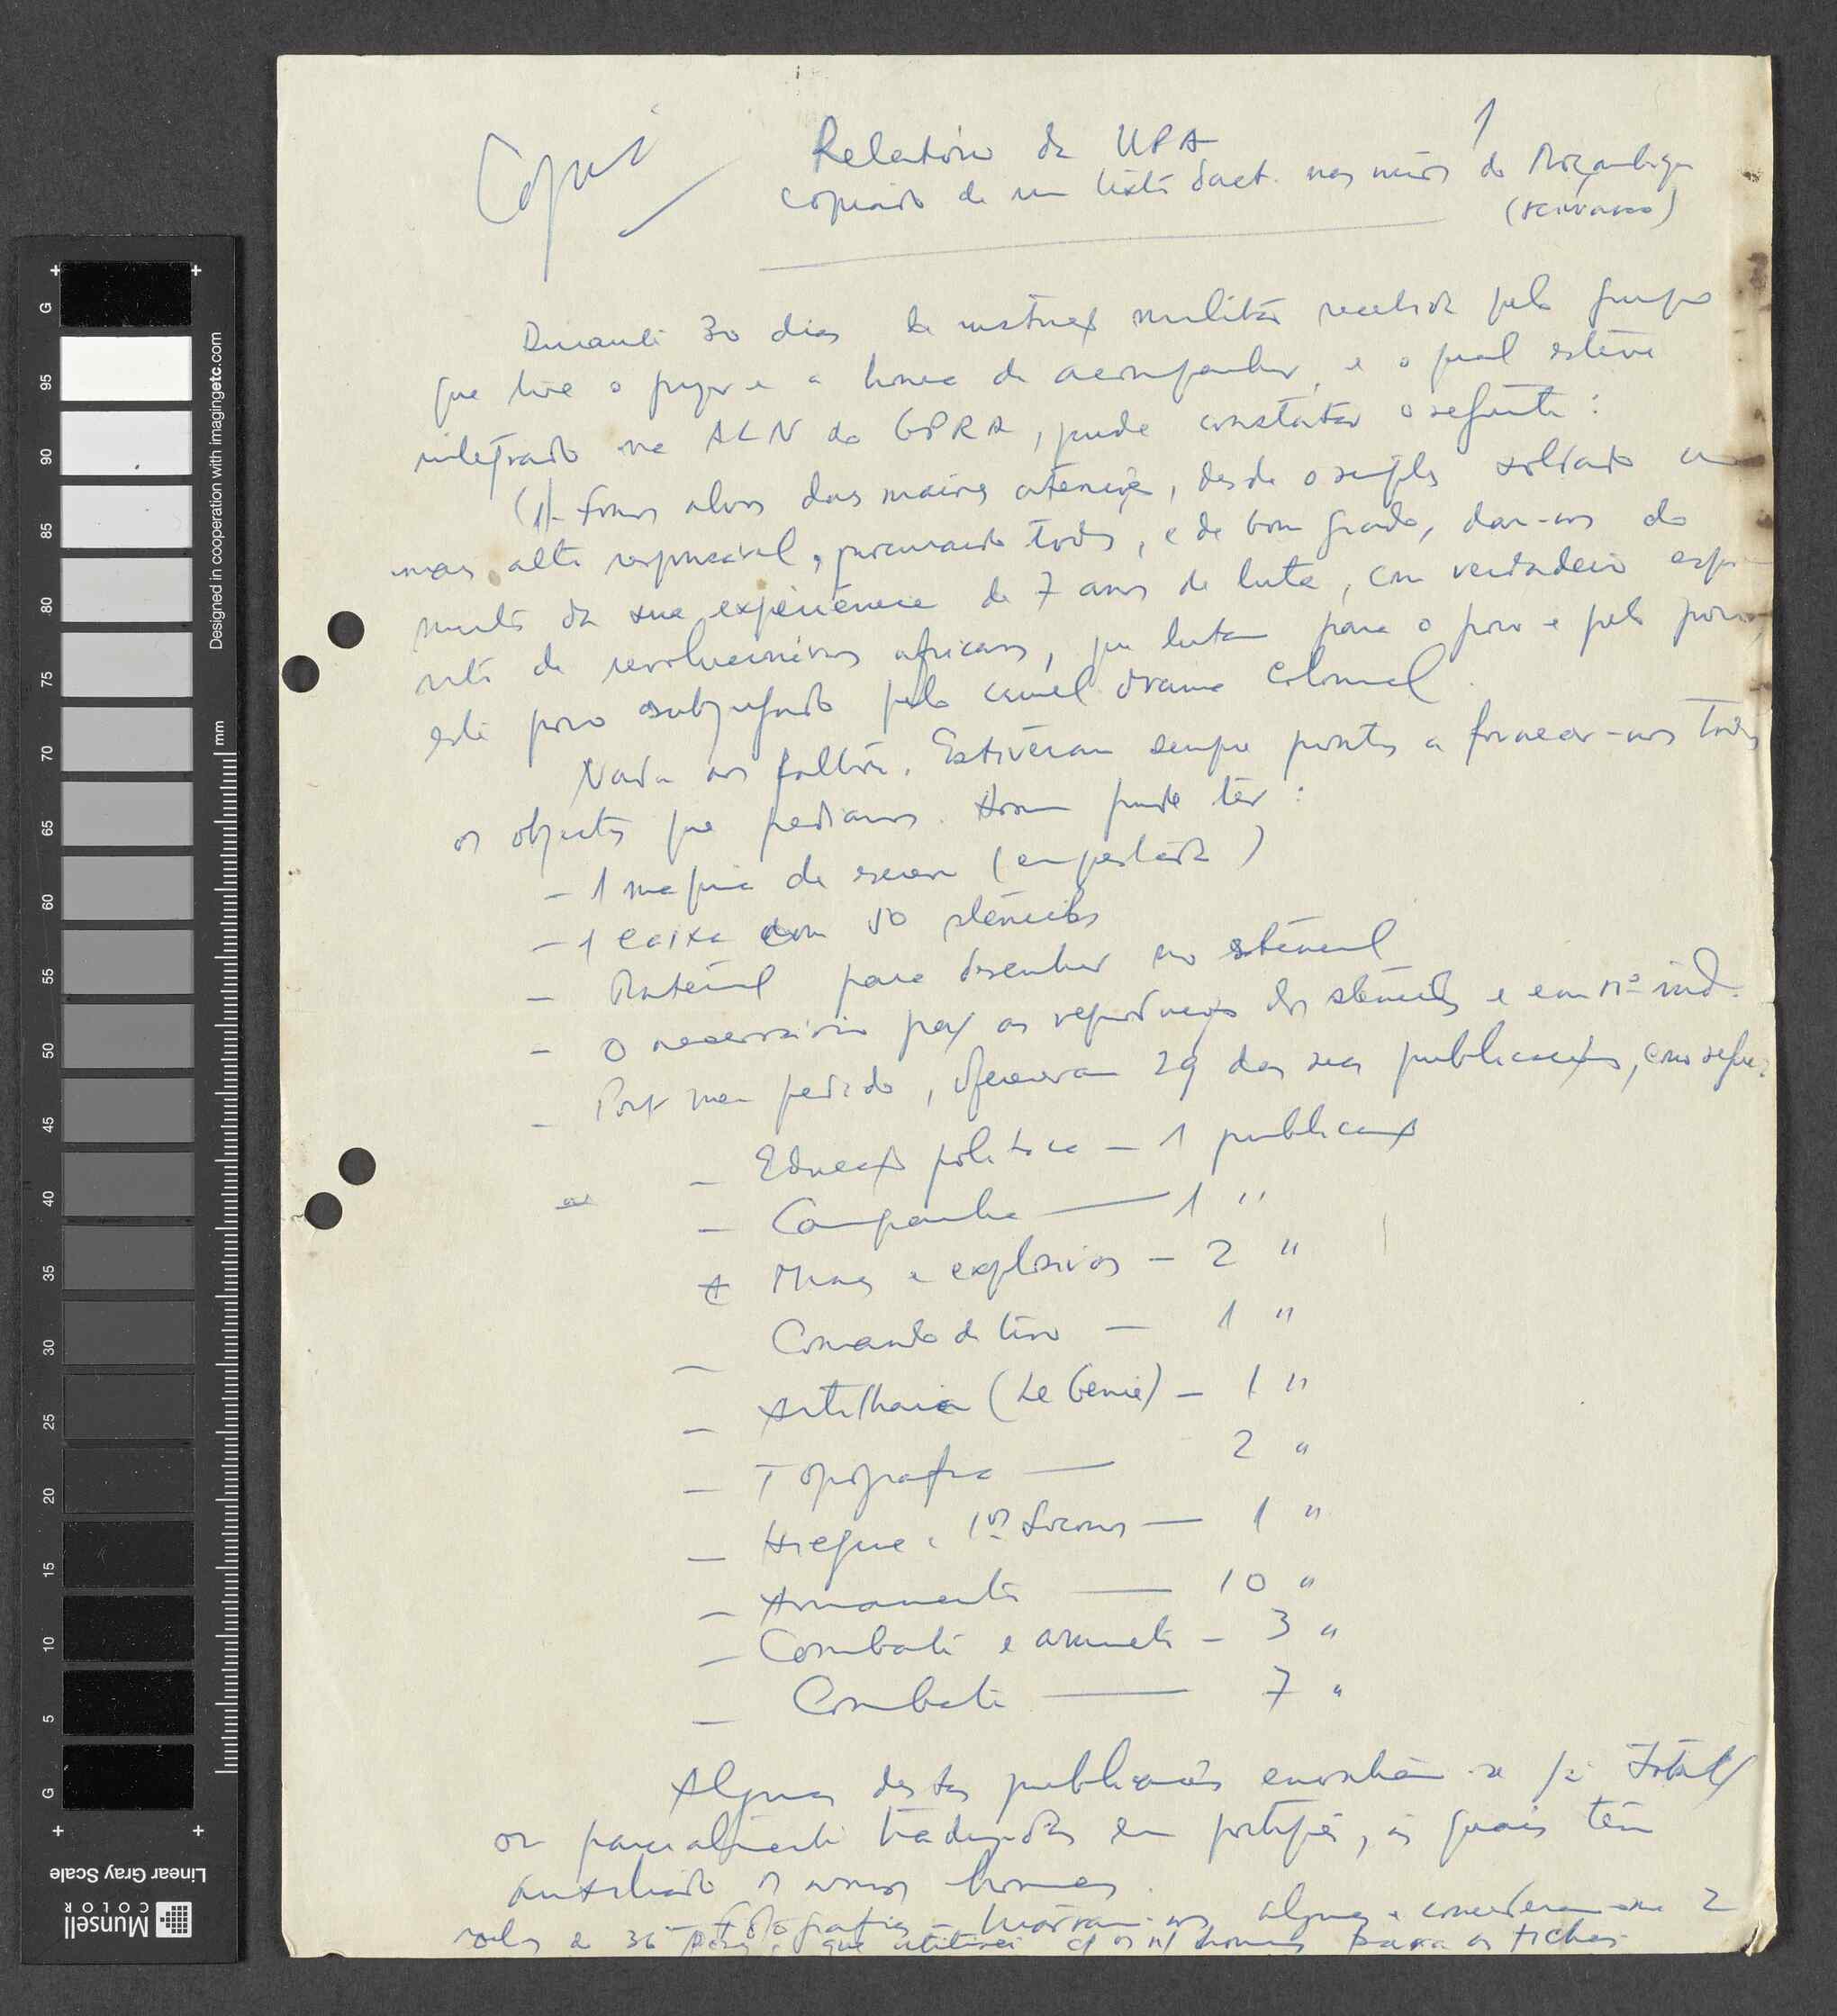 1
Copiei
Relatório da UPA
copiado de um texto dact. nas mãos do Moçambique
Durante 30 dias de instrução militar recebida pelo grupo
que tive o prazer e a honra de acompanhar, e o qual esteve
integrado na ALN do GPRA, pude constatar o seguinte:
(1)- Fomos alvos das maiores atenções, desde o simples soldado ao
mais alto responsável, procurando todos, e de bom grado, dar-nos do
muito da sua experiência de 7 anos de luta, com verdadeiro
de revolucionários africanos, que lutam para o povo e pelo povo,
este povo subjugado pelo cruel drama colonial.
Nada nos faltou. Estiveram sempre prontos a fornecer-nos todos
os objectos que pedíamos. Assim pude ter:
- 1 maquina de escrever (emprestada)
- 1 caixa com 50 sténcils
- Material para desenhar no sténcil
- O necessário para as reproduções dos sténcils e em nº ind.
- Por meu pedido, ofereceram 29 das suas publicações, como segue:
- Educação política - 1 publicação
- Campanha - 1 "
- Minas e explosivos - 2 "
- Comando de tiro - 1 "
- Artilharia (Le Génie) - 1 "
- Topografia - 2 "
- Higiene e 1os Socorros - 1 "
- Armamento - 10 "
- Combate e armamento - 3 "
- Combate - 7 "
Algumas destas publicações encontram-se já total
ou parcialmente traduzidas em português, as quais têm
auxiliado os nossos homens.
- Fotografias - tiraram-nos algumas e concederam-me 2
rolos de 36 que utilizei c/ os n/ homens para as fichas
Designed in cooperation with imagingetc.com
mm
G 95 90 85 80 75 70 65 60 55 50 45 40 35 30 25 20 15 10 5 G
Linear Gray Scale
Munsell
COLOR